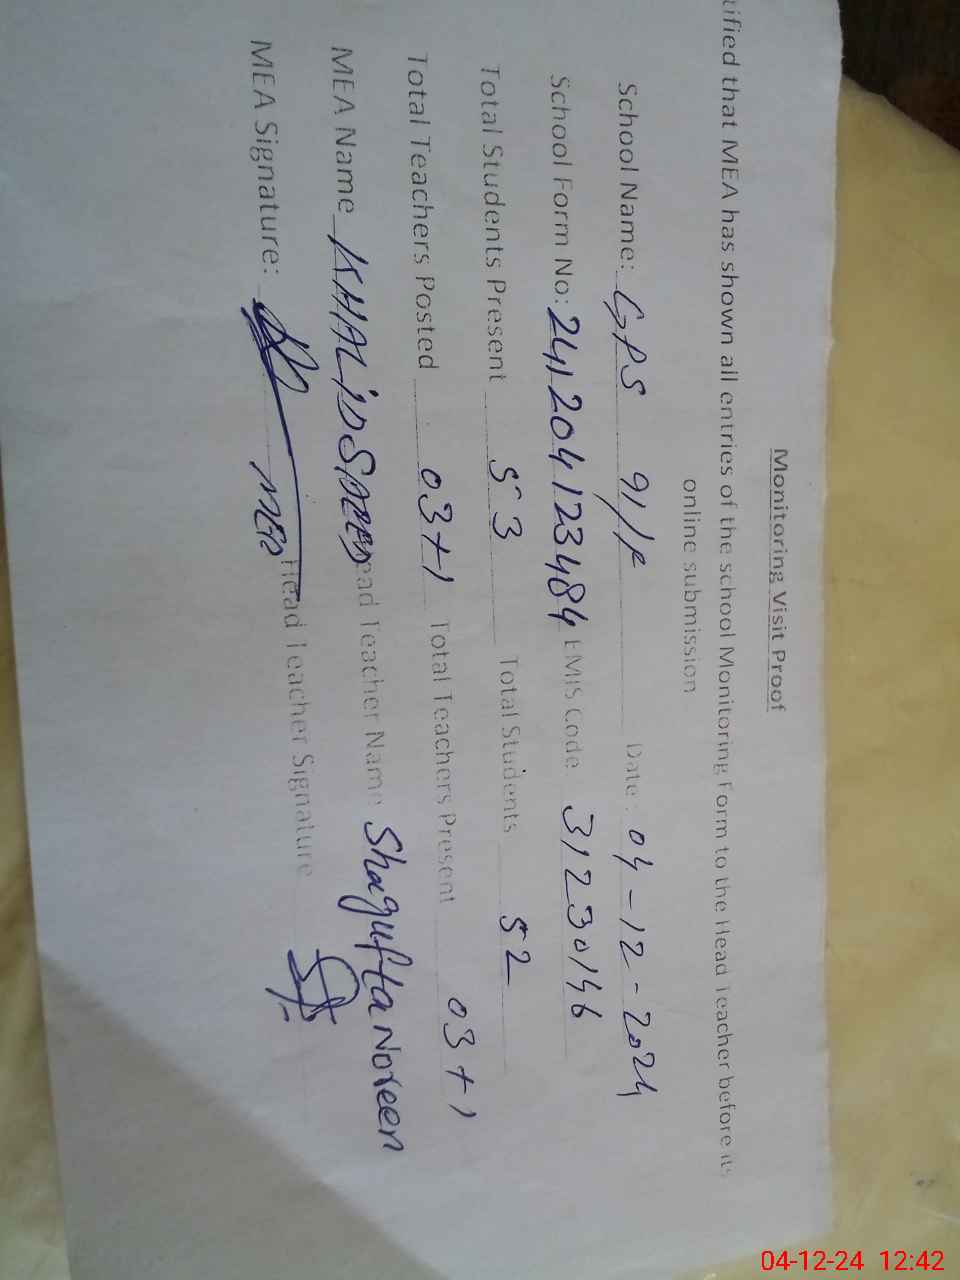 Monitoring Visit Proof
tified that MEA has shown all entries of the school Monitoring Form to the Head Teacher before its
online submission
School Name: GPS 91/P Date: 04-12-2024
School Form No: 241204123484 EMIS Code 31230146
Total Students Present 53 Total Students 52
Total Teachers Posted 03+1 Total Teachers Present 03+1
MEA Name KHALID SAEED ead Teacher Name Shagufta Noreen
MEA Signature: MEA Head Teacher Signature
04-12-24 12:42